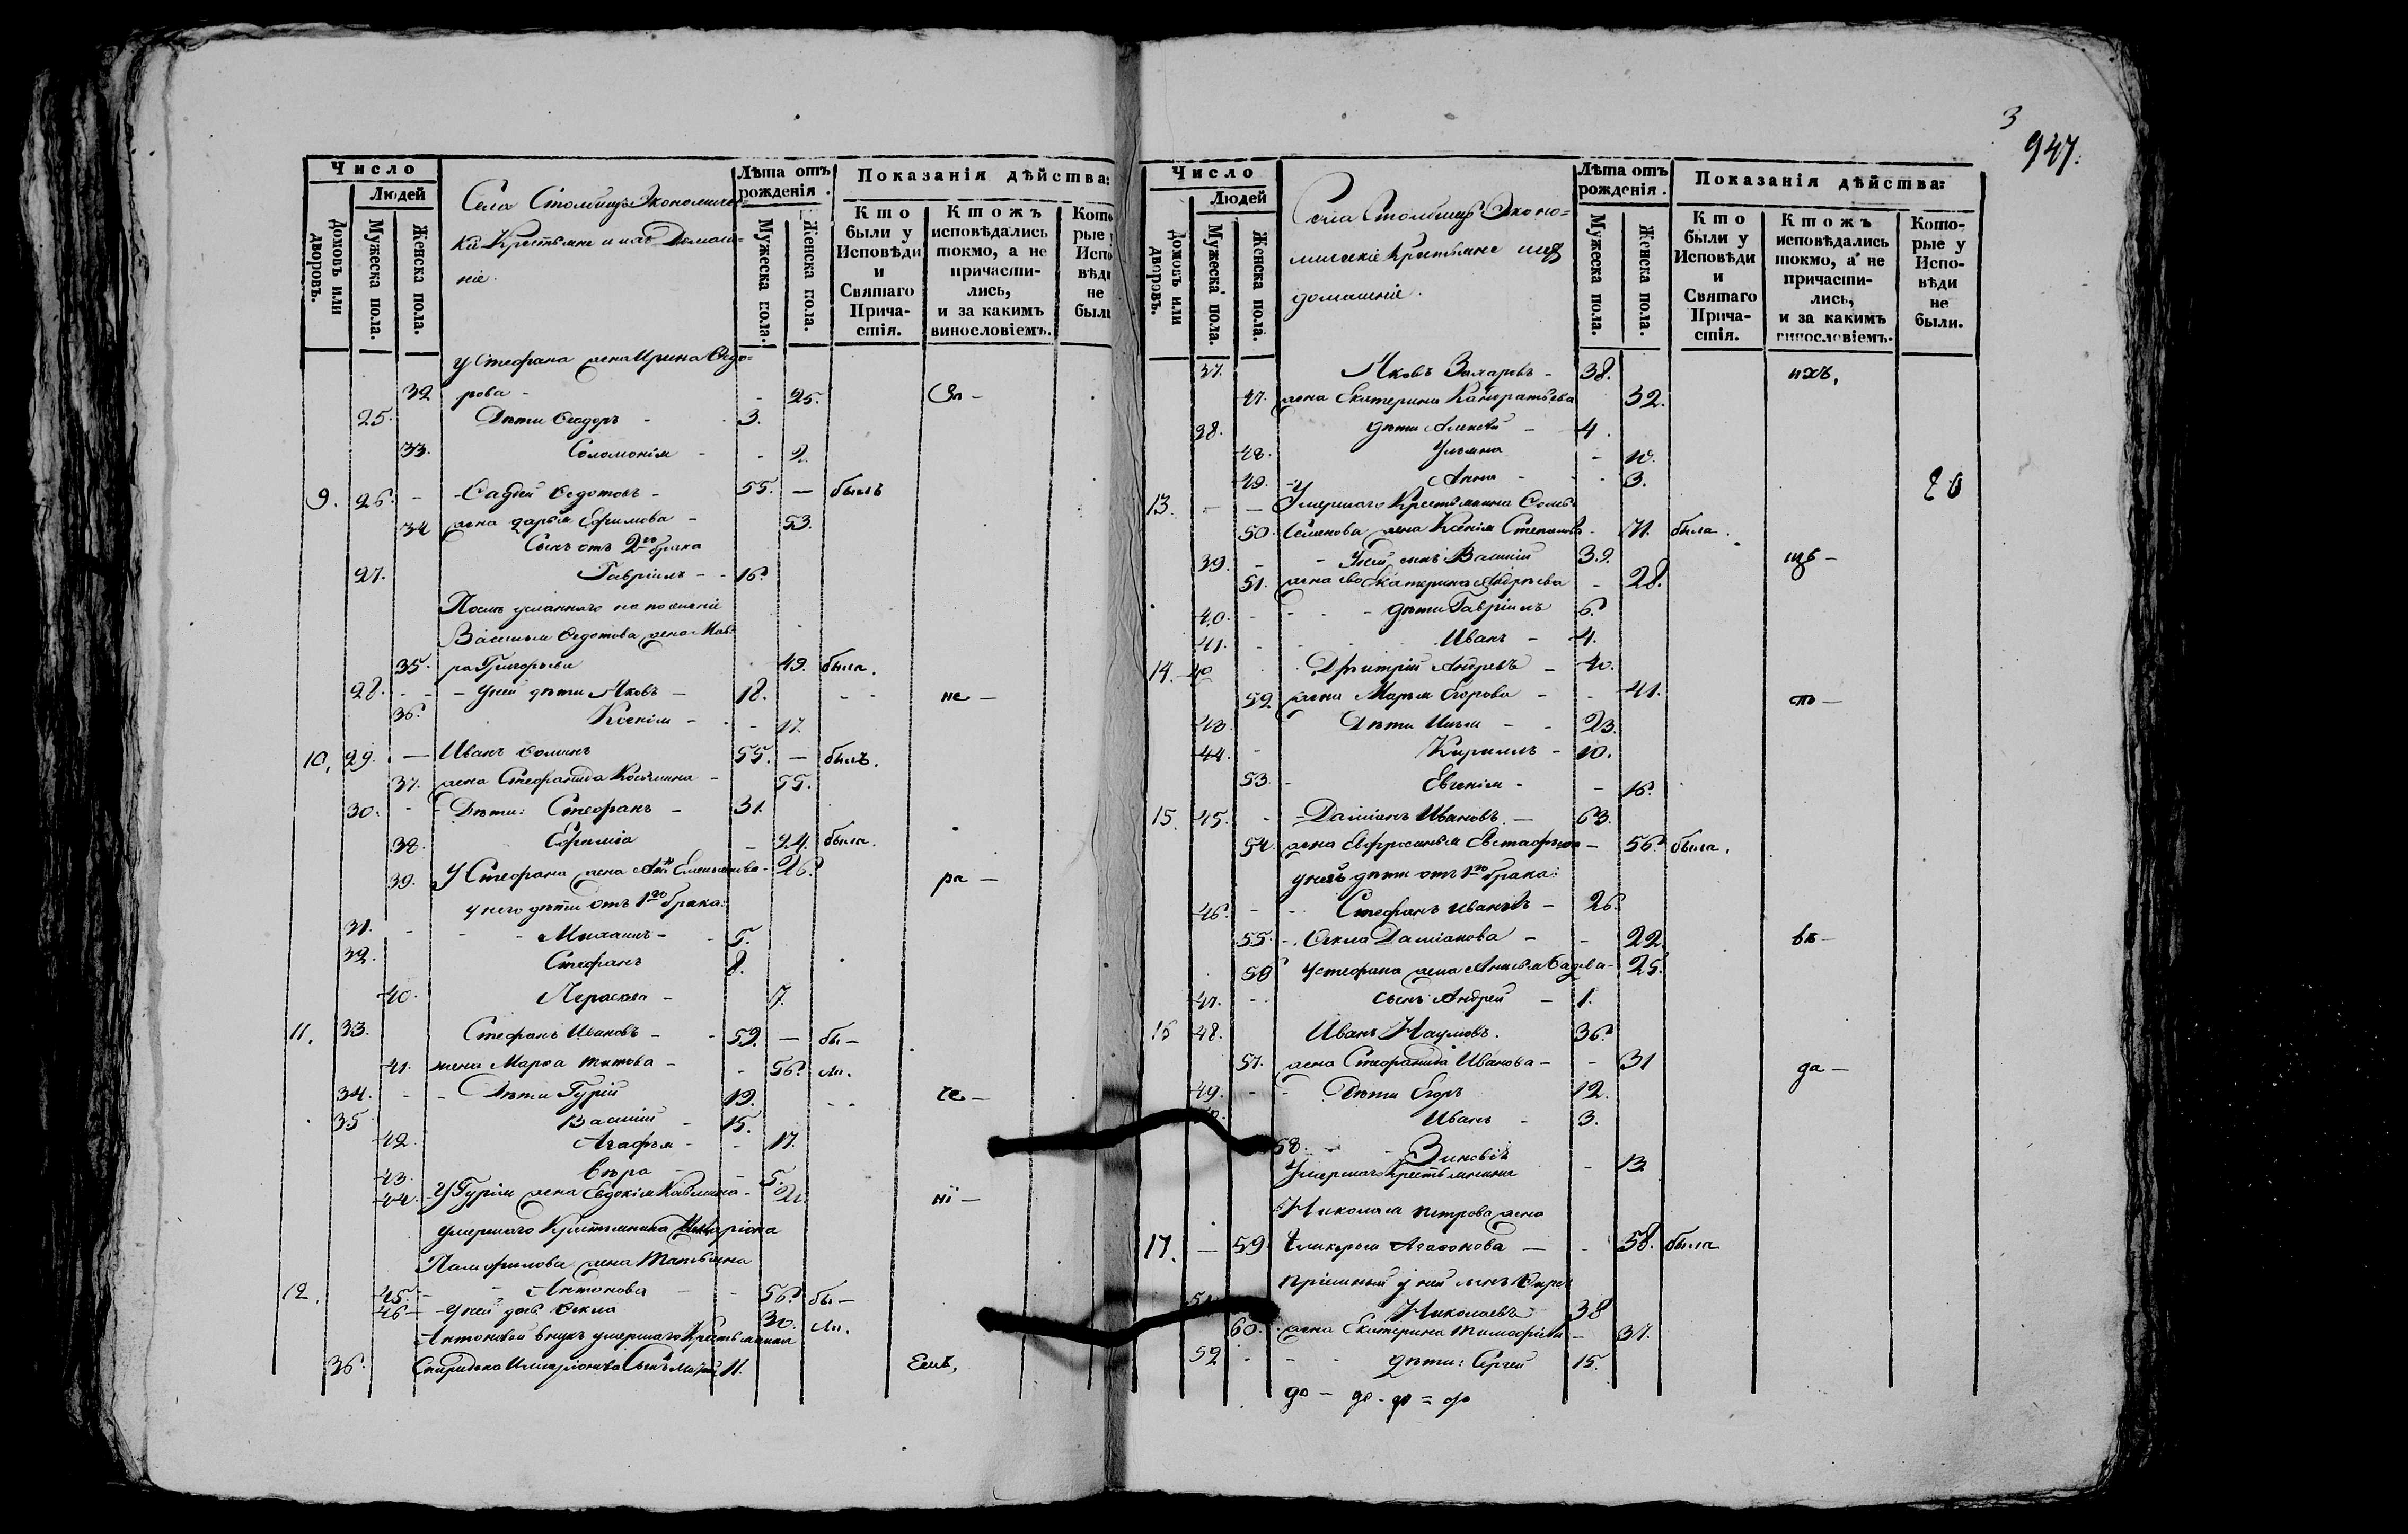 Число
Людей
Домовъ или дворовъ.
Мужеска пола.
Женска пола.
Села Столбищъ Экономичес-
кіе Крестьяне и ихъ Домаш-
ніе.
Лѣта отъ рожденія.
Мужеска пола.
Женска пола.
Показанія дѣйства:
Кто были у Исповѣди и Святаго Прича- стія.
Ктожъ исповѣдались токмо, а не причасти- лись, и за какимъ винословіемъ.
у Стефана жена Ирина Ѳедо-
32 рова - - 25.
25. Дѣти Ѳеодоръ - 3.
33. Соломонія - - 2.
9. 26. - Ѳедотовъ - 55. — былъ
34 жена Дарья Ефимова - 53.
Сынъ отъ 2го брака
27. Гавріилъ - - 16.
на поселеніе
Василья Ѳедотова жена Мав-
35. ра Григорьева 49. была.
28. - - - у ней дѣти Яковъ - 18. - - не —
36. Ксенія - - 17.
10. 29. — Иванъ Ѳоминъ 55. — былъ.
37. жена Стефанида Козмина - 55.
30. - Дѣти: Стефанъ - 31.
38. Ефимія - 24. была.
39. У Стефана жена Емельянова - 26. ра —
у него дѣти отъ 1го брака:
31. - - - Михаилъ - - 5.
32. Стефанъ 8.
40. Параскева - 7.
11. 33. Стефанъ Ивановъ - - 59. — бы-
41. жена Марѳа Титова - - 56. ли.
34. - - Дѣти Гурій 19. - - че —
35 Василій - 15.
42. Агафья - - 17.
43. Вѣра - - 5.
44. - У Гурія жена Евдокія - 21. ні —
умершаго Крестьянина Иларіона
Памфилова жена Татьяна
12. 45. - - Антонова - - 56. бы —
46 - - у ней дочь Ѳекла 30. ли.
Антоновой внукъ умершаго Крестьянина
36. Спиридона Иларіонова Сынъ 11. емъ,
3
947.
Число
Людей
Домовъ или дворовъ.
Мужеска пола.
Женска пола.
Села Столбищъ Эконо-
мическіе Крестьяне и ихъ
домашніе.
Лѣта отъ рожденія.
Мужеска пола.
Женска пола.
Показанія дѣйства:
Кто были у Исповѣди и Святаго Прича- стія.
Ктожъ исповѣдались токмо, а не причасти- лись, и за какимъ винословіемъ.
Кото- рые у Испо- вѣди не были.
37. Яковъ Захаровъ - 38. ихъ,
47. жена Екатерина Кондратьева 32.
38. дѣти Алексѣй - 4.
48. Ульяна - 10.
49. - Анна - - 3.
13. - — Умершаго Крестьянина
50. Семенова жена Ксенія Степанова - 71. была.
39. - - У ней сынъ Василій 32.
51. жена его Екатерина Андреева - 28.
40. - - - дѣти Гавріилъ 6.
41. - - Иванъ - 4.
14. Дмитрій Андреевъ - 40.
52. жена Марья Егорова - - 41.
43. Дѣти Илья - - 23.
44. - Кириллъ - 10.
53. - Евгенія - - 16.
15. 45. - - Даміанъ Ивановъ. — 63.
54. жена Евфросинья Евстафьева - 56. была.
у нихъ дѣти отъ 1го брака:
46. - - Стефанъ Ивановъ - 26.
55. - Ѳекла Даміанова - - 22.
56 у стефана жена - 25.
47. - - сынъ Андрей - 1.
16 48. Иванъ Наумовъ. 36.
57. жена Стефанида Иванова - - 31 да —
49. - - Дѣти Егоръ 12.
Иванъ - 3.
58. - Зиновія - 13.
Умершаго Крестьянина
Николая Петрова жена
17. — 59. Гликерья Агафонова — - 58. была
пріемный у ней сынъ
51 Николаевъ 38
60. жена Екатерина Тимофѣева - 37.
52 - - - дѣти: Сергѣй 15.